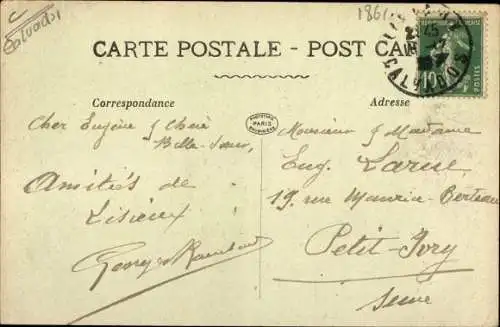 Calvados
1861
CARTE POSTALE - POST CAR
Correspondance
Adresse
PARIS
POSTES
10
CALVADOS
Cher Eugène & Chère
Belle-Sœur,
Amitiés de
Lisieux
Georges
Monsieur & Madame
Eug. Larue
19, rue Maurice-Berteaux
Petit-Ivry
Seine